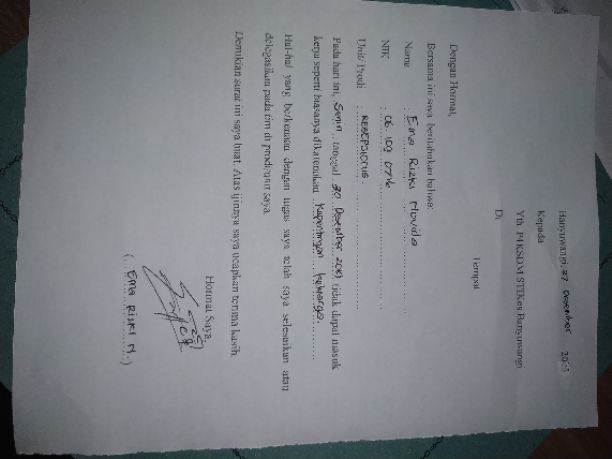 Banyuwangi, 27 Desember 2019
Kepada
Yth. P4KSDM STIKes Banyuwangi
Di
Tempat
Dengan Hormat,
Bersama ini saya beritahukan bahwa:
Nama : Ema Rizki Novida
NIK : 06.109.0716
Unit/ Prodi : RESEPSIONIS.
Pada hari ini, Senin tanggal 30 Desember 2019 tidak dapat masuk
kerja seperti biasanya dikarenakan Kepentingan keluarga.
Hal-hal yang berkenaan dengan tugas saya telah saya selesaikan atau
delegasikan pada tim di saya.
Demikian surat ini saya buat. Atas ijinnya saya ucapkan terima kasih.
Hormat Saya
( Ema Rizki N. )